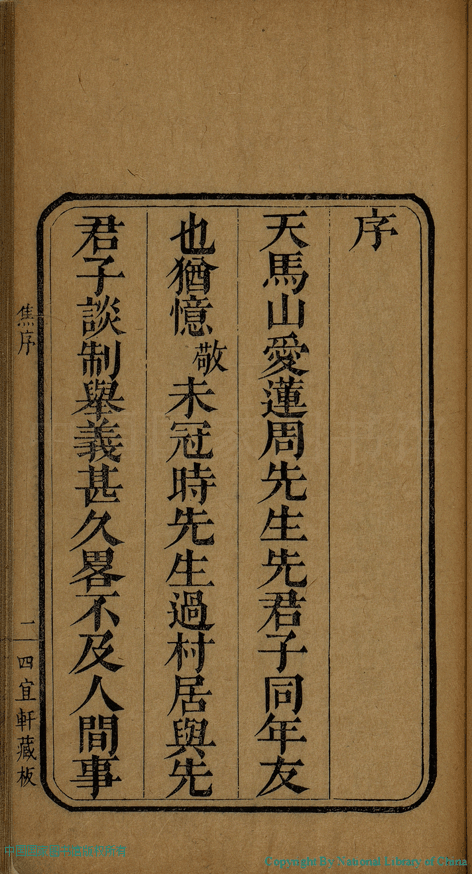 序
天馬山愛蓮周先生先君子同年友
也猶憶敬未冠時先生過村居與先
君子談制舉義甚久畧不及人間事
焦序
二
四宜軒藏板
Copyright By National Library of China